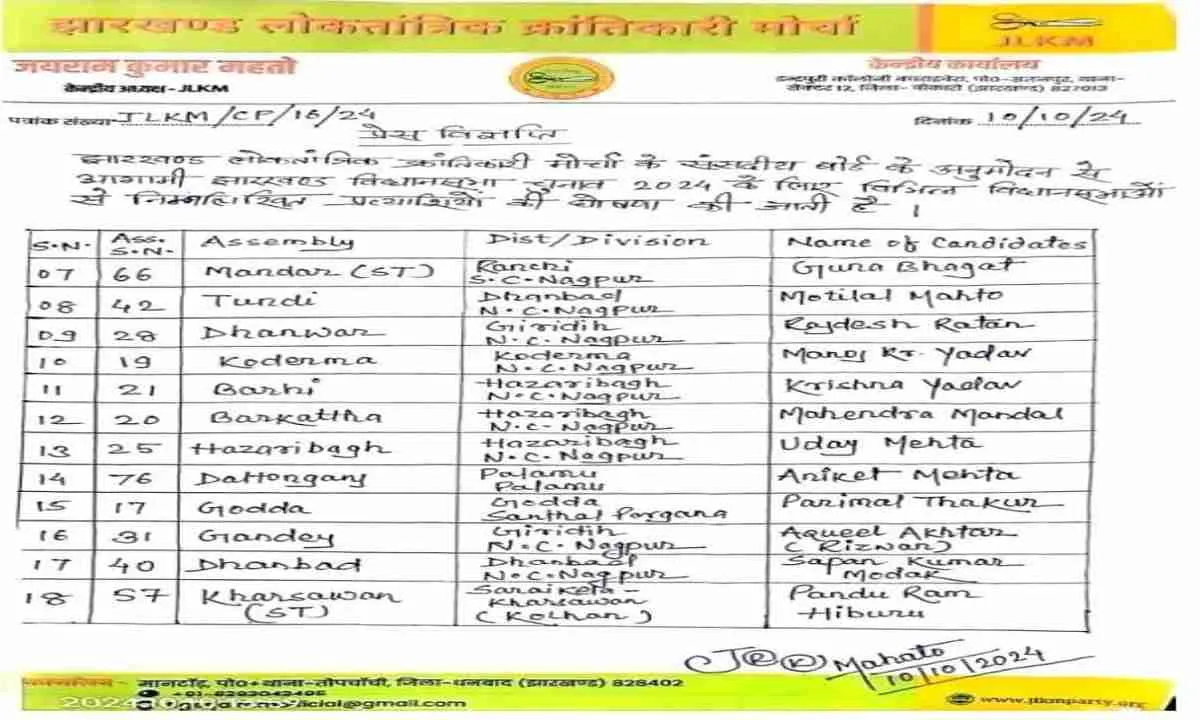 झारखण्ड लोकतांत्रिक क्रांतिकारी मोर्चा
JLKM
जयराम कुमार महतो
केन्द्रीय अध्यक्ष - JLKM
केन्द्रीय कार्यालय
सेक्टर 12, जिला- बोकारो (झारखण्ड) 827013
पत्रांक संख्या- JLKM/CP/16/24
दिनांक 10/10/24
प्रेस विज्ञप्ति
झारखण्ड लोकतांत्रिक क्रांतिकारी मोर्चा के संसदीय बोर्ड के अनुमोदन से
आगामी झारखण्ड विधानसभा चुनाव 2024 के लिए विभिन्न विधानसभाओं
से निम्नलिखित प्रत्याशियों की घोषणा की जाती है ।
S.N. Ass. S.N. Assembly Dist/Division Name of Candidates
07 66 Mandar (ST) Ranchi S.C.Nagpur Guna Bhagat
08 42 Tundi Dhanbad N.C.Nagpur Motilal Mahto
09 28 Dhanwar Giridih N.C.Nagpur Rajdesh Ratan
10 19 Koderma Koderma N.C.Nagpur Manoj Kr. Yadav
11 21 Barhi Hazaribagh N.C.Nagpur Krishna Yadav
12 20 Barkattha Hazaribagh N.C-Nagpur Mahendra Mandal
13 25 Hazaribagh Hazaribagh N.C.Nagpur Uday Mehta
14 76 Daltonganj Palamu Palamu Aniket Mehta
15 17 Godda Godda Santhal Pargana Parimal Thakur
16 31 Gandey Giridih N.C.Nagpur Aqueel Akhtar (Rizwan)
17 40 Dhanbad Dhanbad N.C.Nagpur Sapan Kumar Modak
18 57 Kharsawan (ST) Saraikela-Kharsawan (Kolhan) Pandu Ram Hiburu
Mahato
10/10/2024
मानटाँड़, पो०+थाना-तोपचाँची, जिला-धनबाद (झारखण्ड) 828402
@gmail.com
www.jlkmparty.org